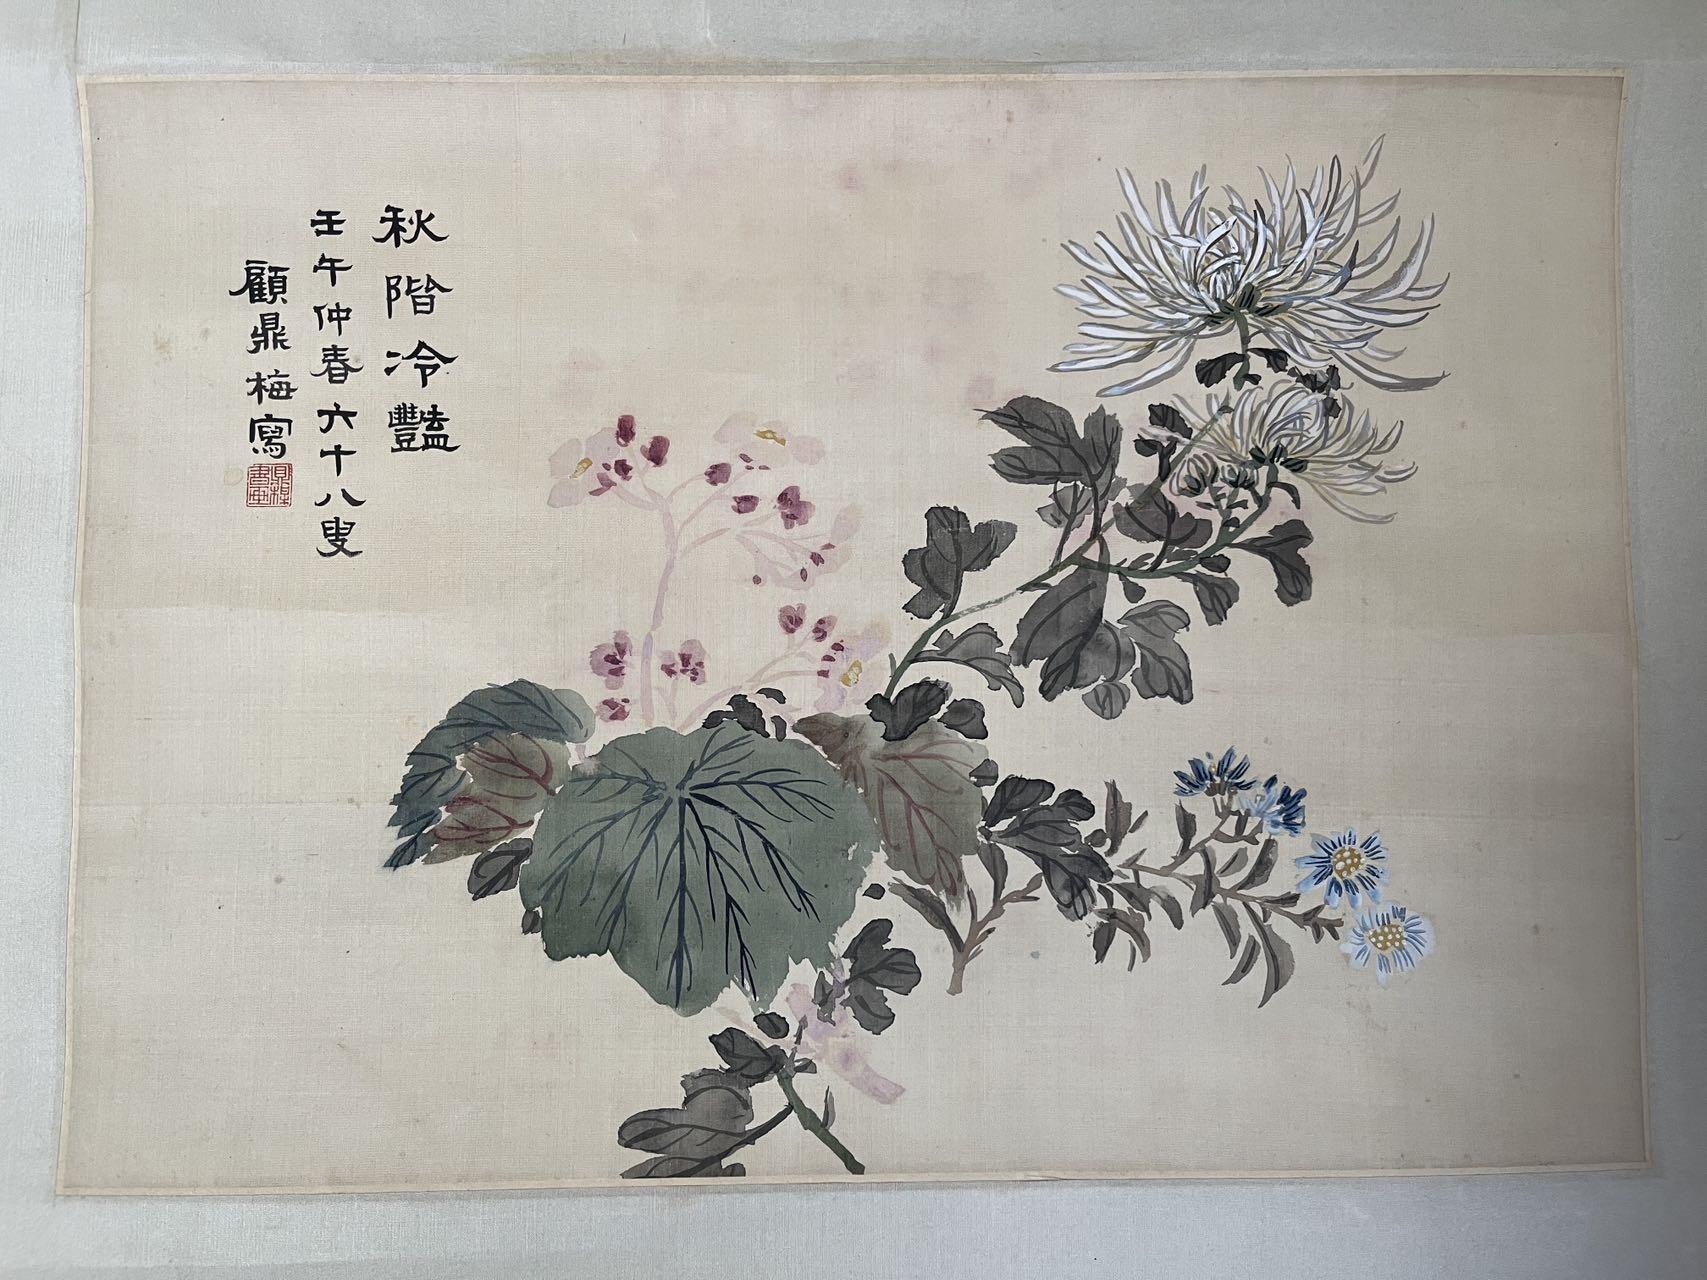 秋階冷豔
壬午仲春六十八叟
顧鼎梅寫